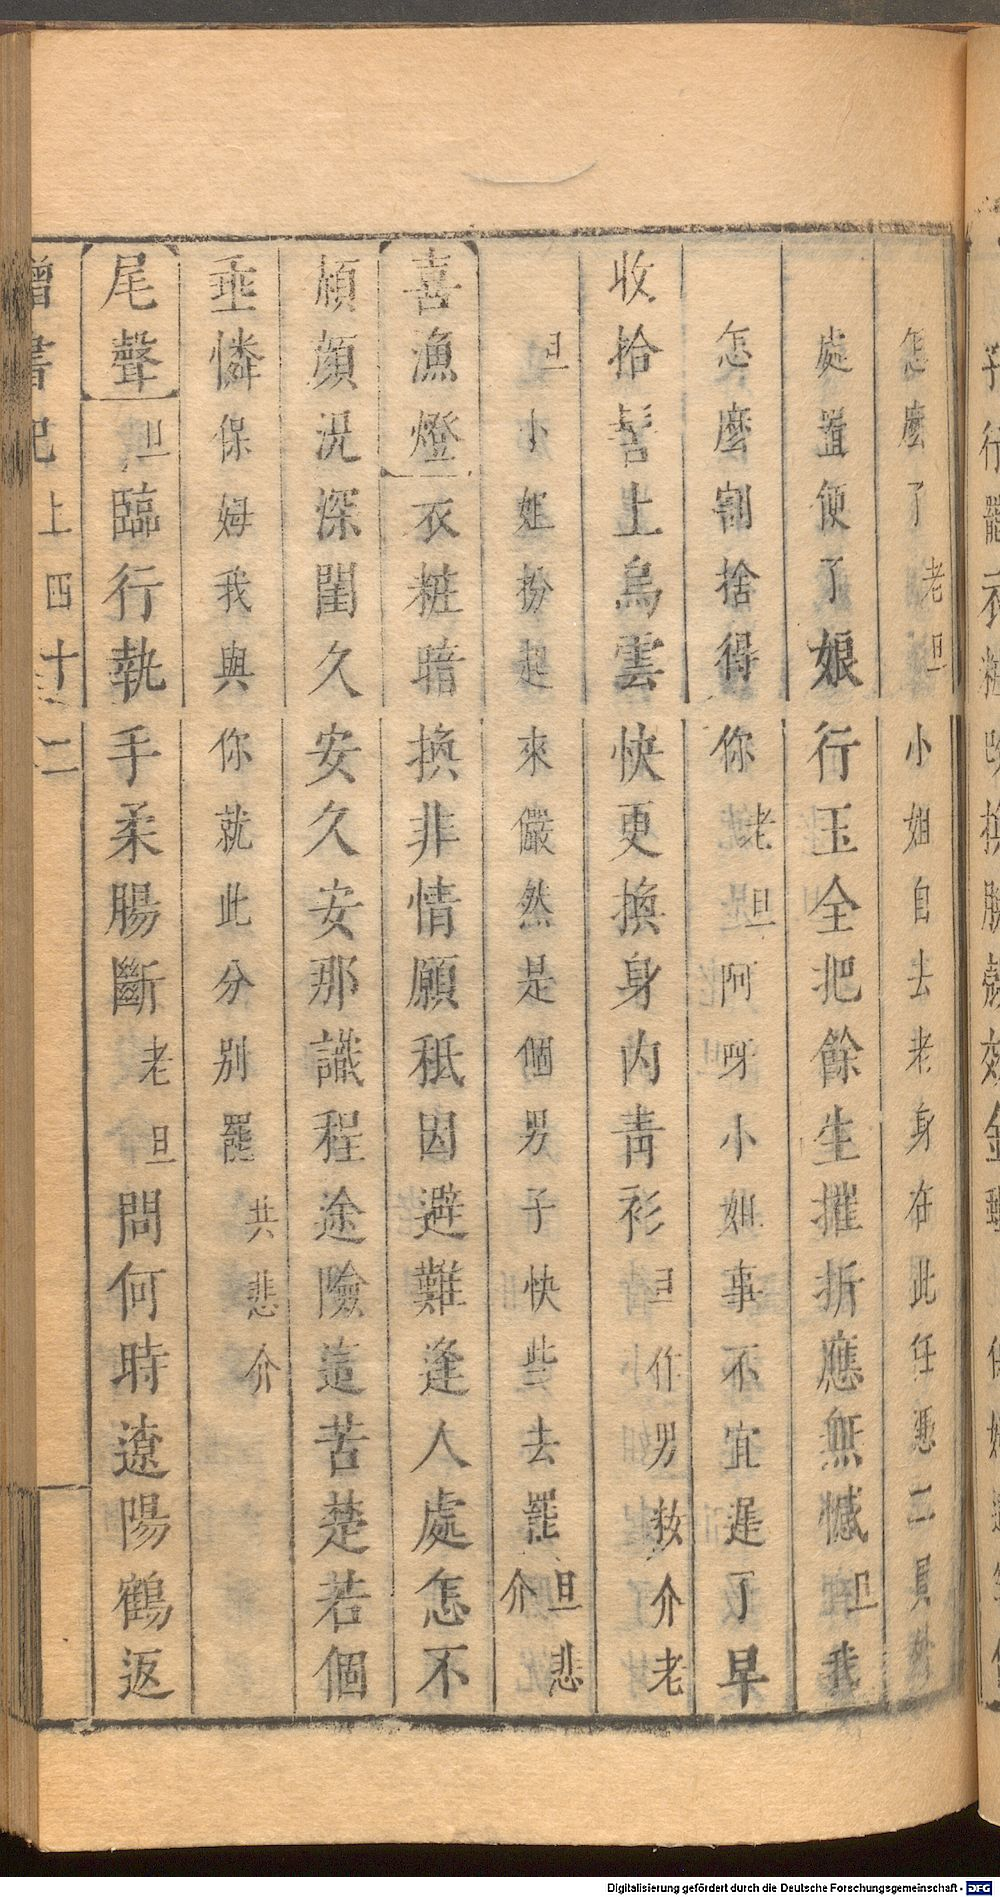 怎麼了老旦小姐自去老身在此任憑二員外
處置便了娘行玉全把餘生摧折應無憾旦我
怎麼割捨得你老旦阿呀小姐事不宜遲了早
收拾髻上烏雲快更換身內青衫旦作男妝介老
旦小姐扮起來儼然是個男子快些去罷旦悲介
喜漁燈衣粧暗換非情願秖因避難逢人處怎不
頳顏況深閨久安久安那識程途險這苦楚若個
垂憐保姆我與你就此分別罷共悲介
尾聲旦臨行執手柔腸斷老旦問何時遼陽鶴返
書記上四十二
Digitalisierung gefördert durch die Deutsche Forschungsgemeinschaft - DFG